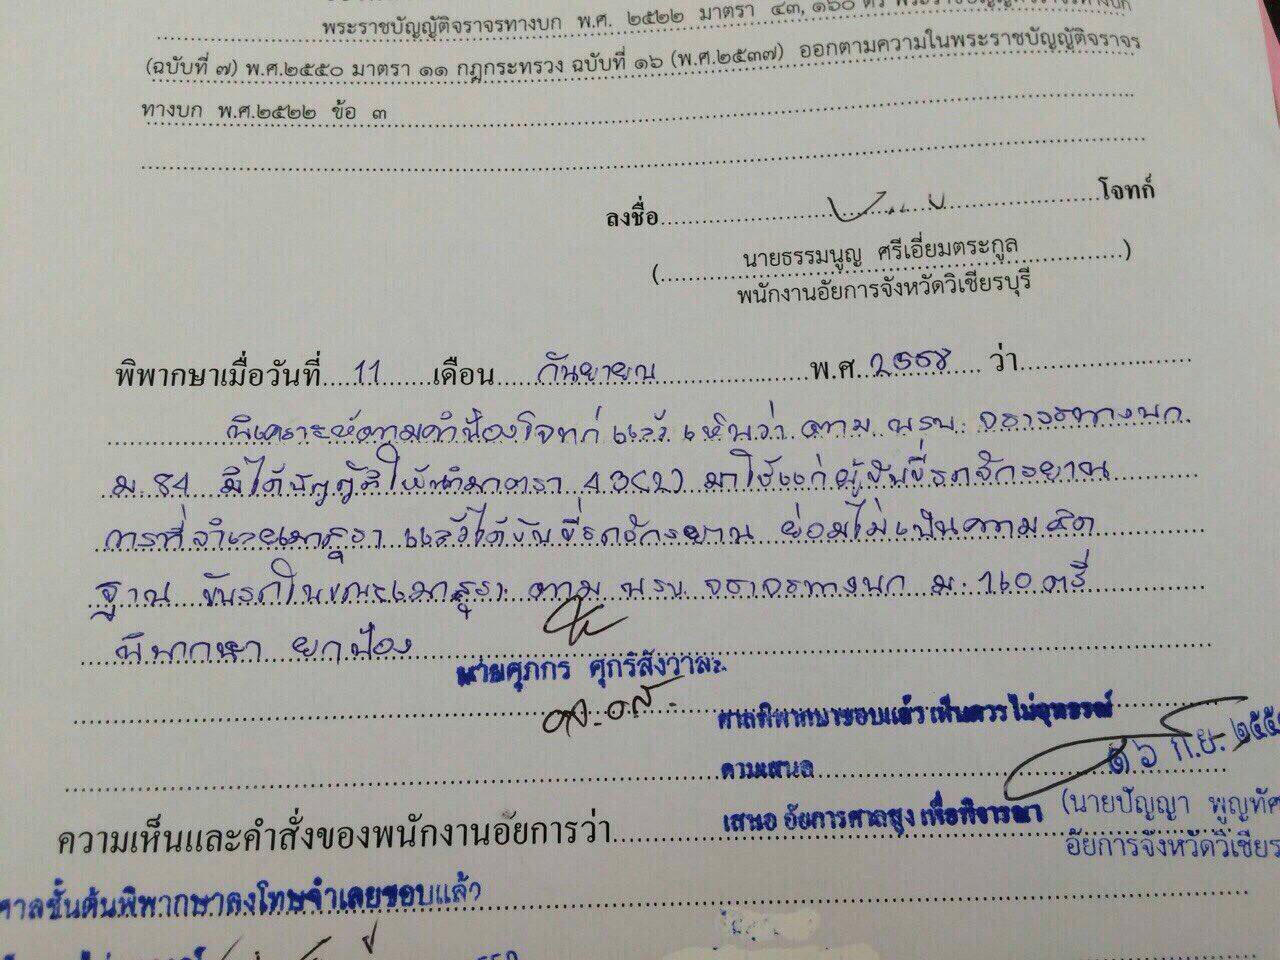 พระราชบัญญัติจราจรทางบก พ.ศ. ๒๕๒๒ มาตรา ๔๓, ๑๖๐ ตรี พระราชบัญญัติจราจรทางบก
(ฉบับที่ ๗) พ.ศ.๒๕๕๐ มาตรา ๑๑ กฎกระทรวง ฉบับที่ ๑๖ (พ.ศ.๒๕๓๗) ออกตามความในพระราชบัญญัติจราจร
ทางบก พ.ศ.๒๕๒๒ ข้อ ๓
ลงชื่อ โจทก์
(นายธรรมนูญ ศรีเอี่ยมตระกูล)
พนักงานอัยการจังหวัดวิเชียรบุรี
พิพากษาเมื่อวันที่ 11 เดือน กันยายน พ.ศ. 2558 ว่า
พิเคราะห์ตามคำฟ้องโจทก์ แล้ว เห็นว่า ตาม พรบ. จราจรทางบก
ม. 84 มิได้บัญญัติให้นำมาตรา 43(2) มาใช้แก่ผู้ขับขี่รถจักรยาน
การที่จำเลยเมาสุรา แล้วได้ขับขี่รถจักรยาน ย่อมไม่เป็นความผิด
ฐาน ขับรถในขณะเมาสุรา ตาม พรบ. จราจรทางบก ม. 160 ตรี
พิพากษา ยกฟ้อง
นายศุภกร ศุกรีสังวาละ
ศาลพิพากษาชอบแล้ว เห็นควร ไม่อุทธรณ์
ตามเสนอ
๑๖ ก.ย. ๒๕๕
เสนอ อัยการศาลสูง เพื่อพิจารณา
(นายปัญญา พูญทัศ
ความเห็นและคำสั่งของพนักงานอัยการว่า
อัยการจังหวัดวิเชียร
ศาลชั้นต้นพิพากษาลงโทษจำเลยชอบแล้ว